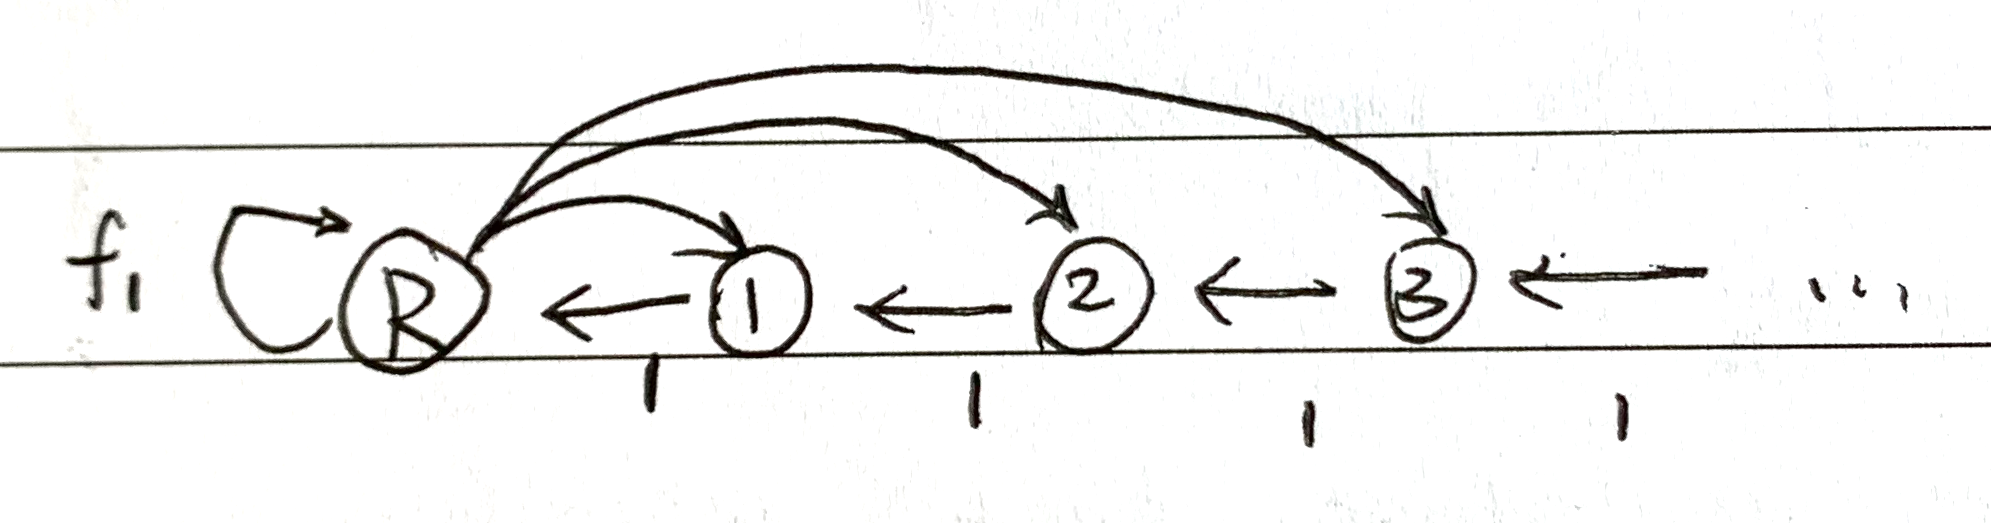 f₁ R 1 2 3 ...
1 1 1 1